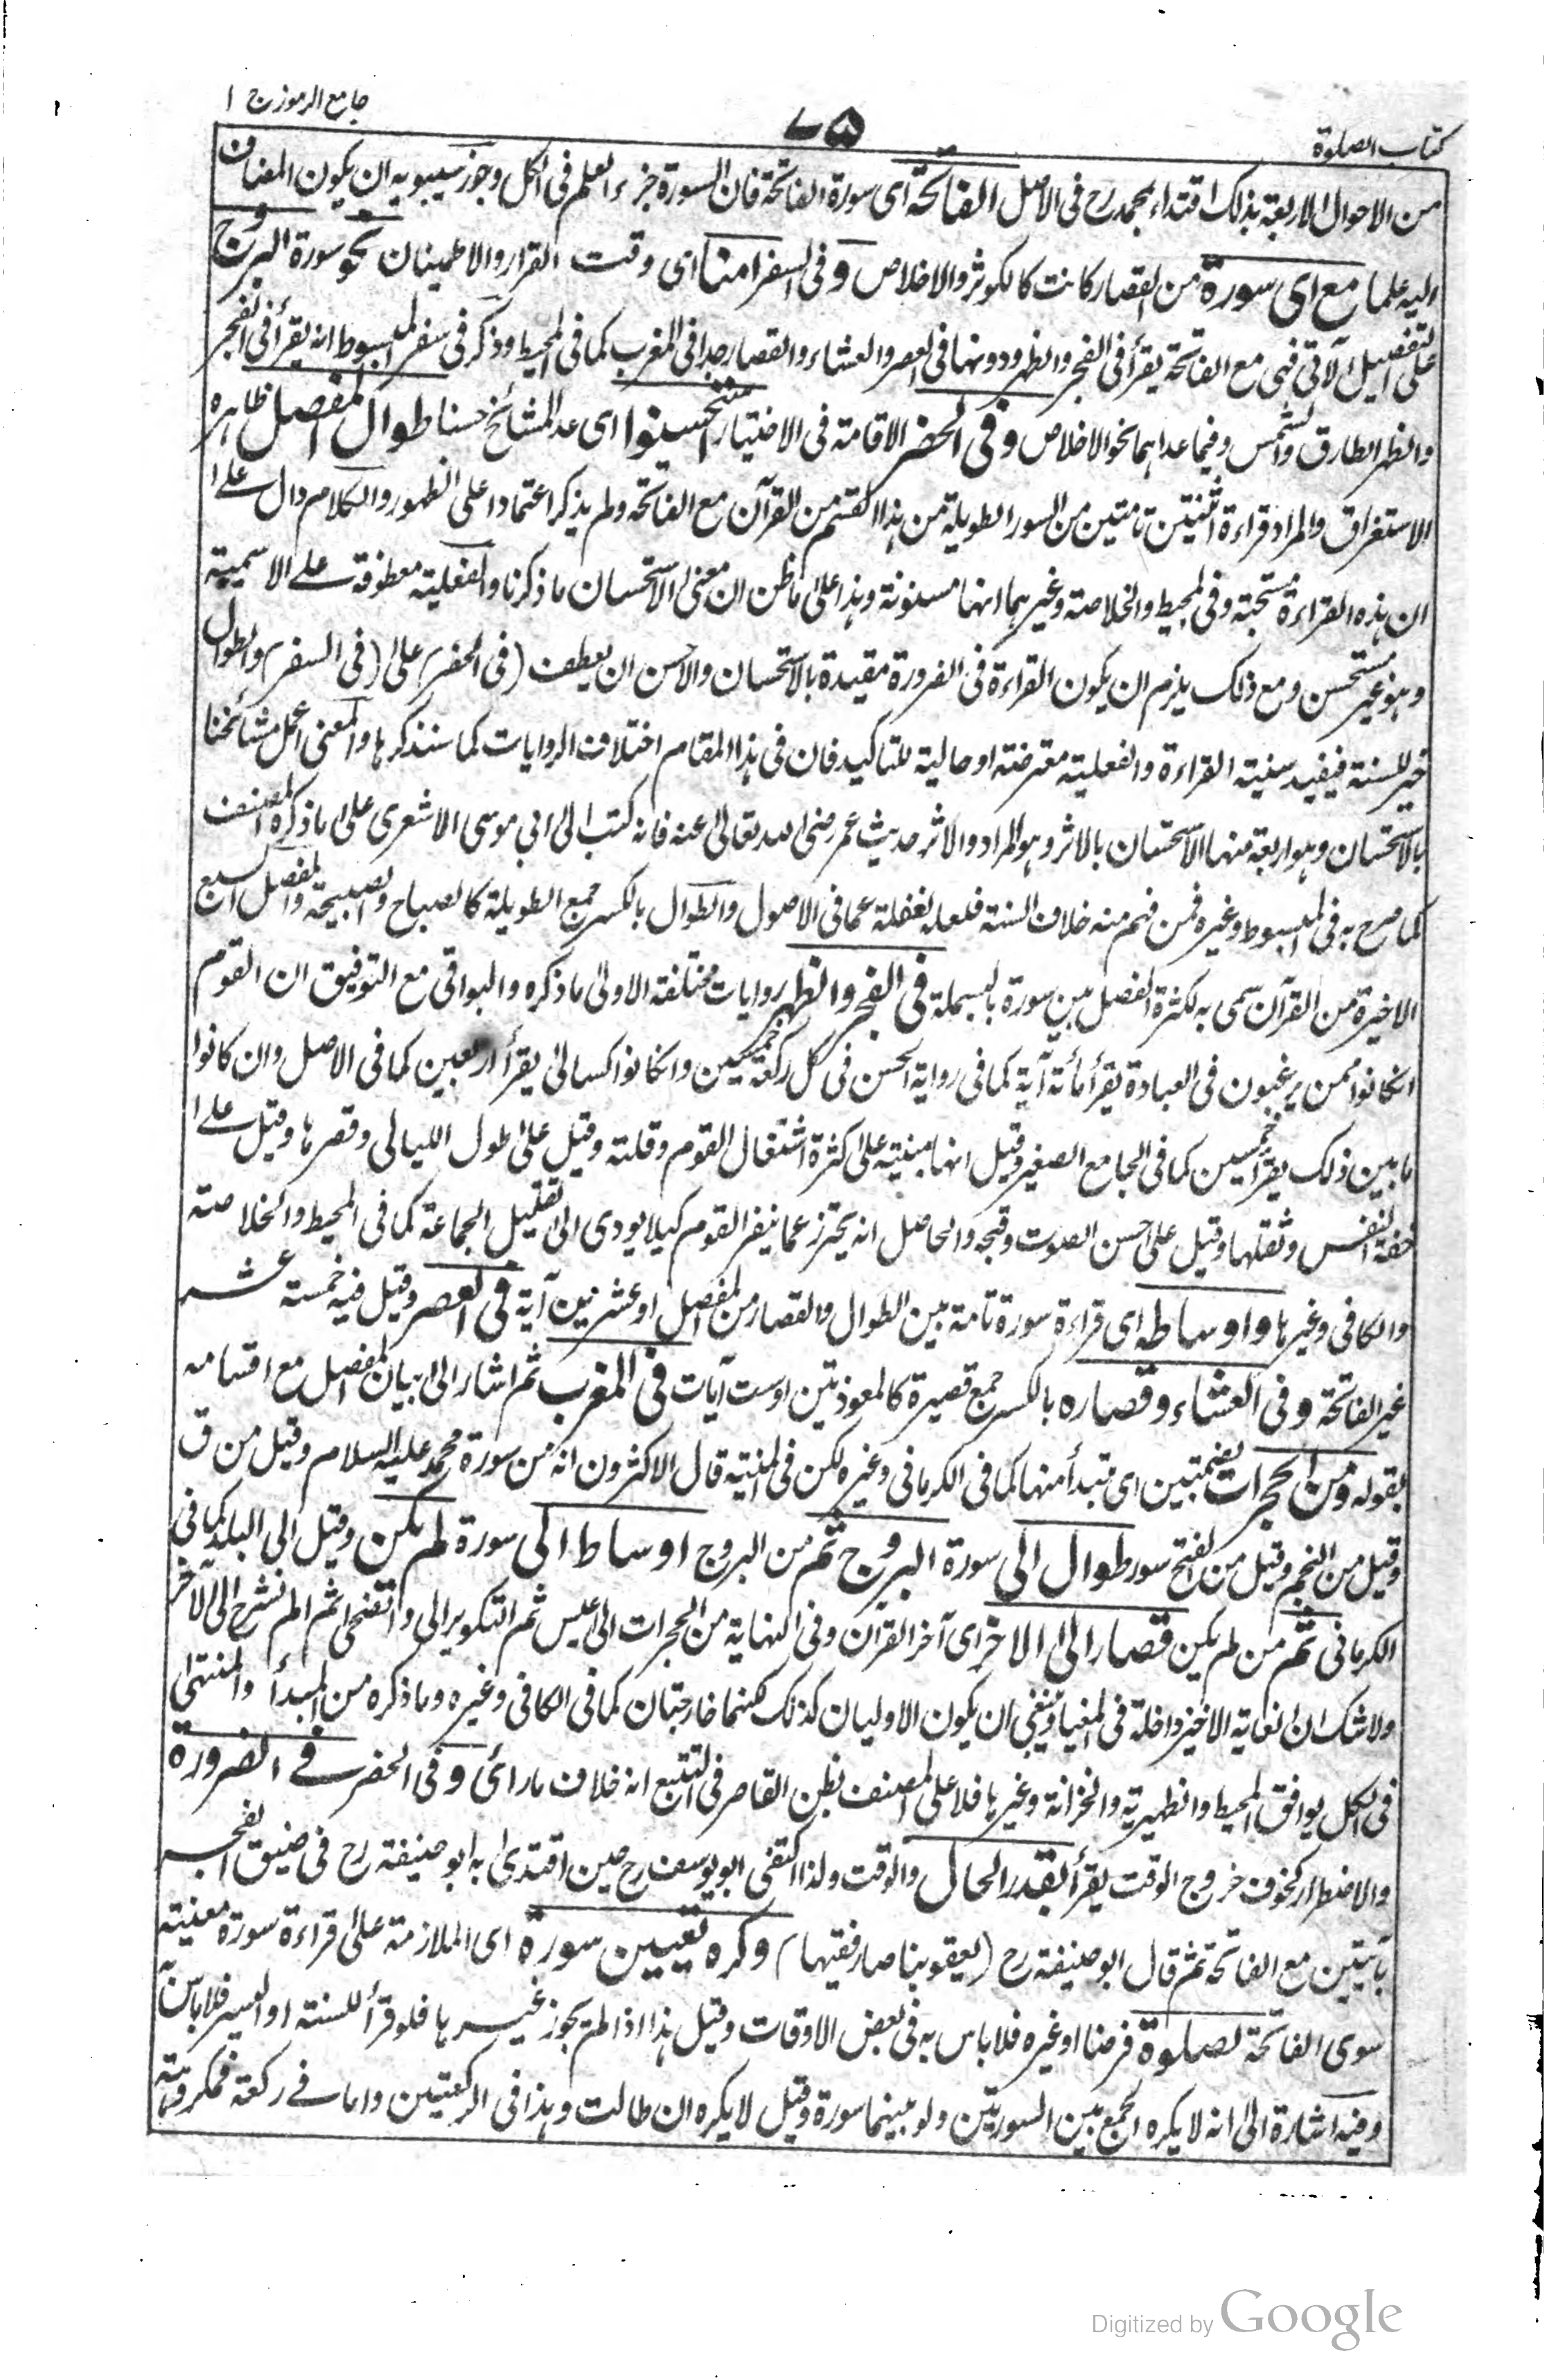 كتاب الصلوة
٧٥
جامع الرموز ج ١
من الاحوال الاربعة بذلك اقتداء بمحمد رح فى الاصل الفاتحة اى سورة الفاتحة فان السورة جزء العلم فى الكل وجوز سيبويه ان يكون المضاف
اليه علما مع اى سورة من القصار كانت كالكوثر والاخلاص وفى السفر امنا اى وقت القرار والاطمينان نحو سورة البروج
على التفصيل الآتى فهى مع الفاتحة يقرأ فى الفجر والظهر ودونها فى العصر والعشاء والقصار جدا فى المغرب كما فى المحيط وذكر فى سفر المبسوط انه يقرأ فى الفجر
والظهر الطارق والشمس وفيما عداهما نحو الاخلاص وفى الحضر الاقامة فى الاختيار استحسنوا اى عد المشائخ حسنا طوال المفصل ظاهره
الاستغراق والمراد قراءة اثنتين تامتين من السور الطويلة من هذا القسم من القرآن مع الفاتحة ولم يذكر اعتمادا على الظهور والكلام دال على
ان هذه القراءة مستحبة وفى المحيط والخلاصة وغيرهما انها مسنونة وهذا على ما ظن ان معنى الاستحسان ما ذكرنا والفعلية معطوفة على الاسمية
وهو غير مستحسن ومع ذلك يلزم ان يكون القراءة فى الضرورة مقيدة بالاستحسان والاحسن ان يعطف (فى الحضر) على (فى السفر) والطوال
خبر للسنة فيفيد سنية القراءة والفعلية معترضة او حالية للتاكيد فان فى هذا المقام اختلاف الروايات كما سنذكرها والمعنى عمل مشائخنا
بالاستحسان وهو اربعة منها الاستحسان بالاثر وهو المراد والاثر حديث عمر رضى الله تعالى عنه فانه كتب الى ابى موسى الاشعرى على ما ذكره المصنف
كما صرح به فى المبسوط وغيره فمن فهم منه خلاف السنة فلعله لغفلة عما فى الاصول والطوال بالكسر جمع الطويلة كالصباح والصبيحة والمفصل السبع
الاخيرة من القرآن سمى به لكثرة الفصل بين سورة بالبسملة فى الفجر والظهر روايات مختلفة الاولى ما ذكره والبواقى مع التوفيق ان القوم
ان كانوا ممن يرغبون فى العبادة يقرأ مائة آية كما فى رواية الحسن فى كل ركعة خمسين وان كانوا كسالى يقرأ اربعين كما فى الاصل وان كانوا
ما بين ذلك يقرأ خمسين كما فى الجامع الصغير وقيل انها مبنية على كثرة اشتغال القوم وقلته وقيل على طول الليالى وقصرها وقيل على
خفة النفس وثقلها وقيل على حسن الصوت وقبحه والحاصل انه يحترز عما ينفر القوم كيلا يودى الى تقليل الجماعة كما فى المحيط والخلاصة
والكافى وغيرها واوساطه اى قراءة سورة تامة بين الطوال والقصار من المفصل او عشرين آية فى العصر وقيل فيه خمسة عشر
غير الفاتحة وفى العشاء وقصاره بالكسر جمع قصيرة كالمعوذتين او ست آيات فى المغرب ثم اشار الى بيان المفصل مع اقسامه
بقوله ومن الحجرات بضمتين اى مبتدأ منها كما فى الكرمانى وغيره لكن فى المنية قال الاكثرون انه من سورة محمد عليه السلام وقيل من ق
وقيل من النجم وقيل من الفتح سور طوال الى سورة البروج ثم من البروج اوساط الى سورة لم يكن وقيل الى البلد كما فى
الكرمانى ثم من لم يكن قصار الى الاخر اى آخر القرآن وفى النهاية من الحجرات الى عبس ثم التكوير الى والضحى ثم الم نشرح الى الآخر
ولا شك ان الغاية الاخيرة داخلة فى المغيا فينبغى ان يكون الاوليان كذلك لكنهما خارجتان كما فى الكافى وغيره وما ذكره من المبدأ والمنتهى
فى الكل يوافق المحيط والظهيرية والخزانة وغيرها فلا على المصنف بظن القاصر فى التتبع انه خلاف ما رأى وفى الحضر فى الضرورة
والاضطرار كخوف خروج الوقت يقرأ بقدر الحال والوقت ولذا اكتفى ابو يوسف رح حين اقتدى به ابو حنيفة رح فى ضيق الفجر
بآيتين مع الفاتحة ثم قال ابو حنيفة رح (يعقوبنا صار فقيها) وكره تعيين سورة اى الملازمة على قراءة سورة معينة
سوى الفاتحة لصلوة فرضا او غيره فلا باس به فى بعض الاوقات وقيل هذا اذا لم يجوز غيرها فلو قرأ للسنة او اليسر فلا باس
وفيه اشارة الى انه لا يكره الجمع بين السورتين ولو بينهما سورة وقيل لا يكره ان طالت وهذا فى الركعتين واما فى ركعة فمكروهة
Digitized by Google